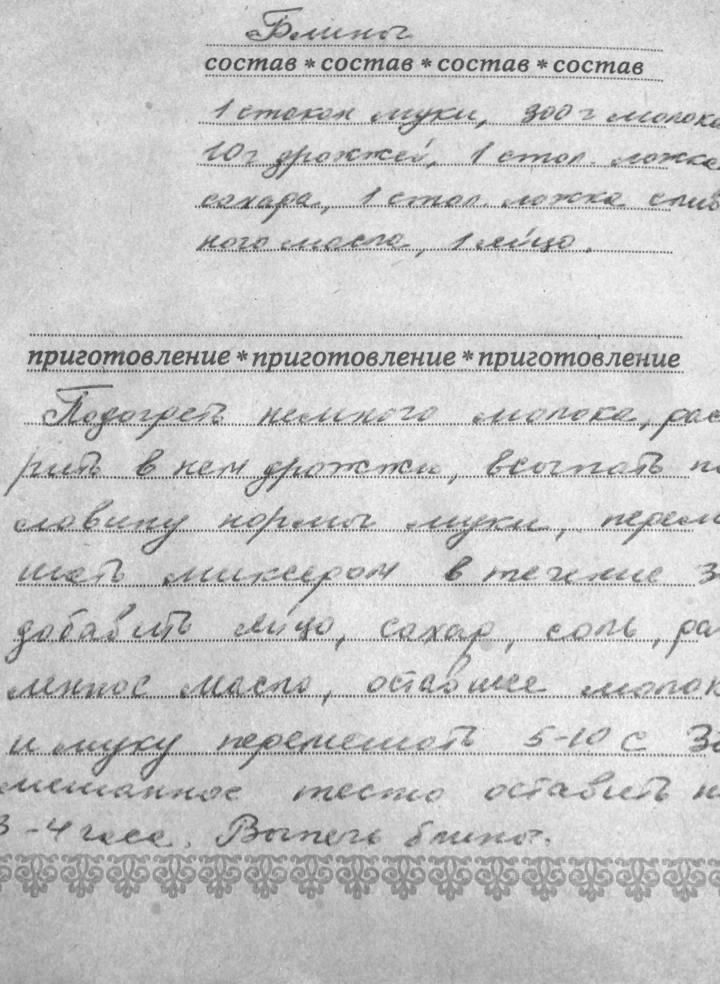 Блины
состав * состав * состав * состав
1 стакан муки, 300 г молока
10 г дрожжей, 1 стол. ложка
сахара, 1 стол. ложка слив
ного масла, 1 яйцо.
приготовление * приготовление * приготовление
Подогреть немного молока, рас
рить в нем дрожжи, всыпать по
ловину нормы муки, переме
шать миксером в течение 3
добавить яйцо, сахар, соль, рас
ленное масло, оставшее молок
и муку перемешать 5-10 с За
мешанное тесто оставить на
3-4 часа. Выпечь блины.